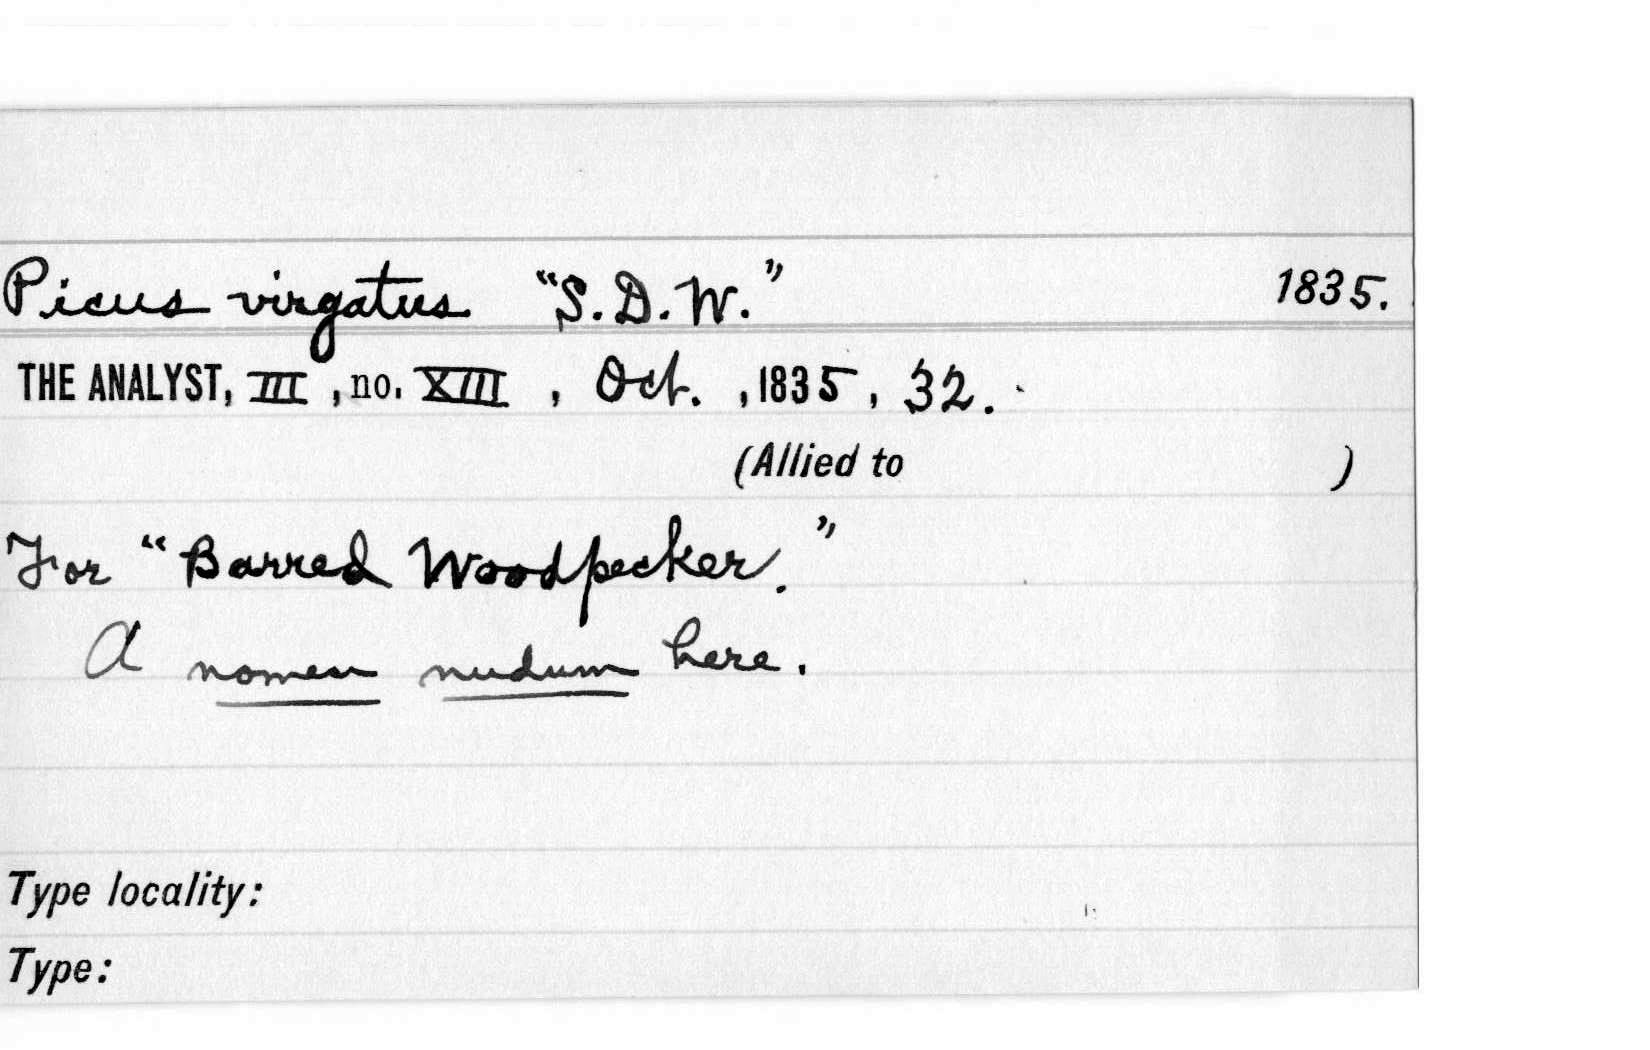 Picus virgatus "S.D.W." 1835.
THE ANALYST, III, no. XIII, Oct., 1835, 32.
(Allied to )
For "Barred Woodpecker."
A nomen nudum here.
Type locality:
Type: